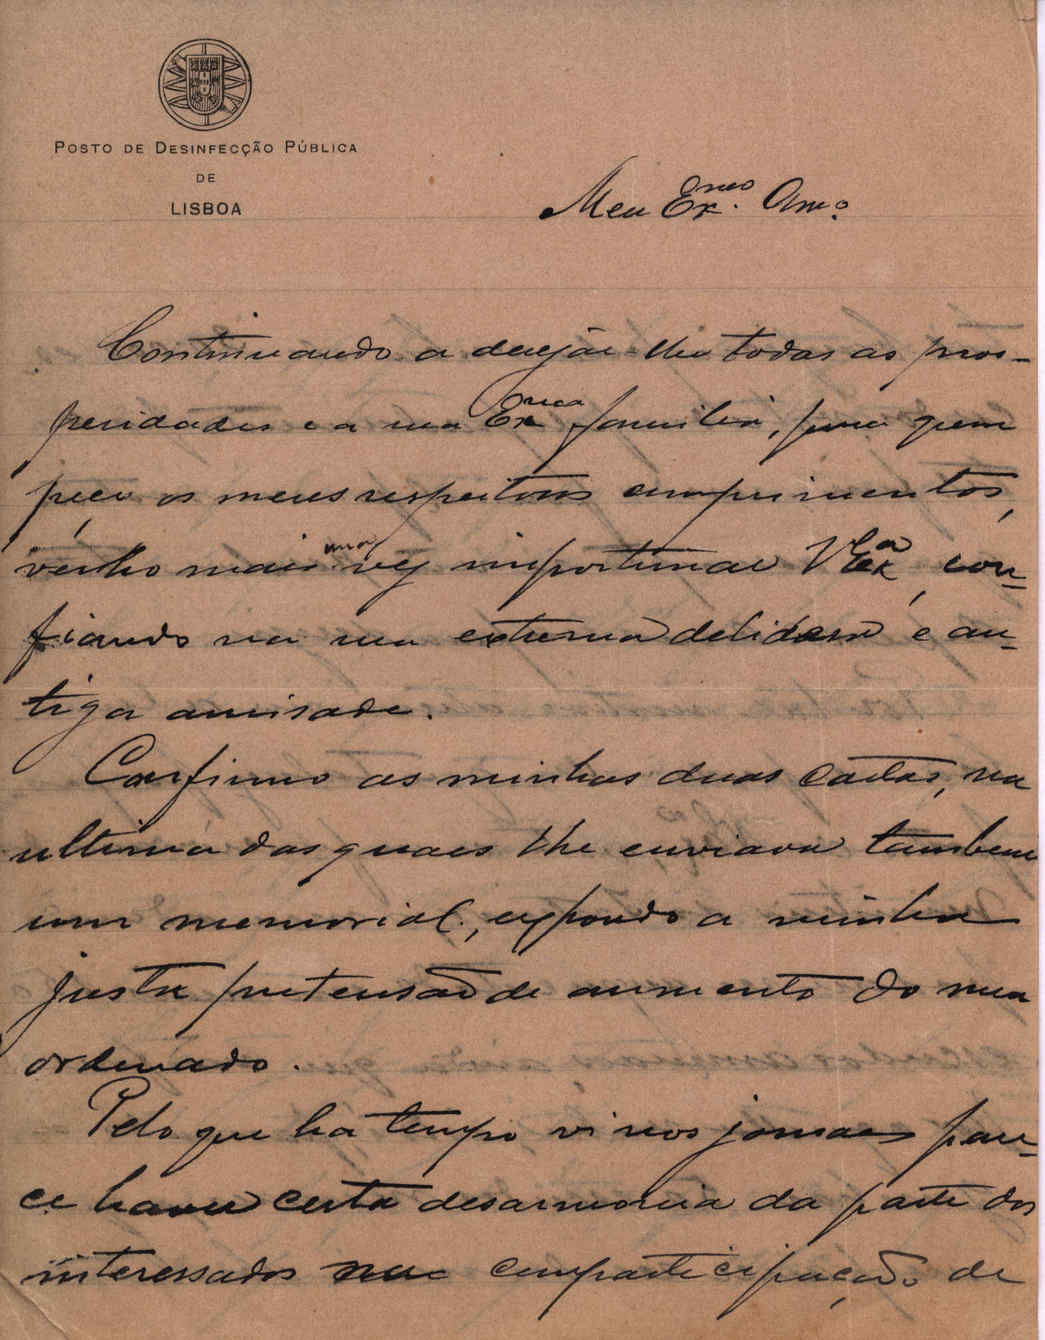 POSTO DE DESINFECÇÃO PÚBLICA
DE
LISBOA
Meu Exmo. Amo.
Continuando a desejar-lhe todas as pros-
peridades e a sua Exma familia, para quem
peço os meus respeitosos cumprimentos,
venho mais uma vez importunar V Exa, con-
fiando na sua extrema delicadeza e an-
tiga amisade.
Confirmo as minhas duas cartas, na
ultima das quaes lhe enviava tambem
um memorial, expondo a minha
justa pretensão de aumento do meu
ordenado.
Pelo que ha tempo vi nos jornaes pare-
ce haver certa desarmonia da parte dos
interessados na comparticipação de